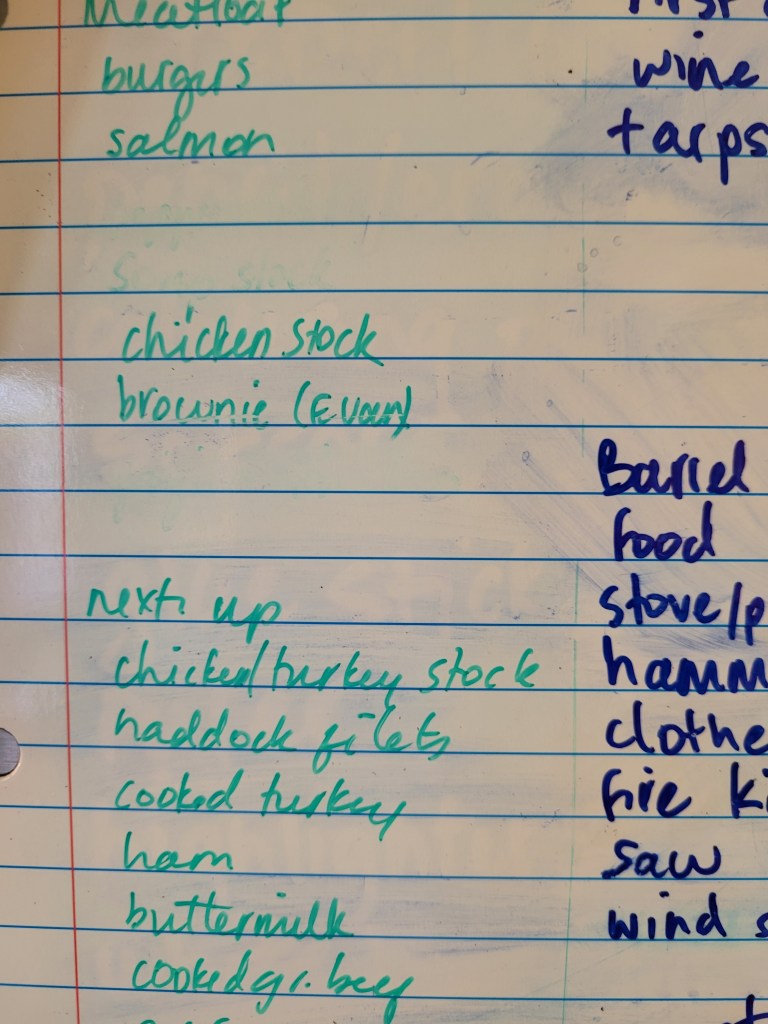 Meatloaf
burgers
salmon
chicken stock
brownie (Evan)
next up
chicken/turkey stock
haddock filets
cooked turkey
ham
buttermilk
cooked gr. beef
wine
tarps
Barrel
food
stove/p
hamm
clothe
fire ki
saw
wind s